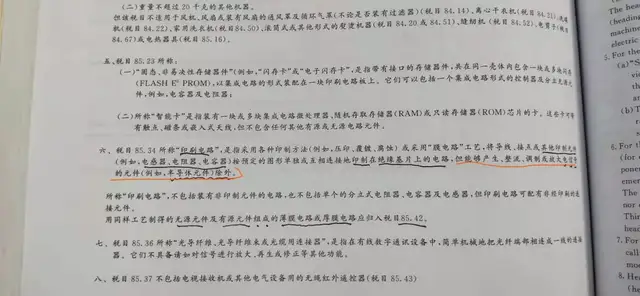 (二)重量不超过 20 千克的其他机器。
但该税目不适用于风机、风扇或装有风扇的通风罩及循环气罩(不论是否装有过滤器)(税目 84.14)、离心干衣机(税目 84.21)、洗碟
机(税目 84.22)、家用洗衣机(税目84.50)、滚筒式或其他形式的熨烫机器(税目 84.20 或 84.51)、缝纫机(税目 84.52)、电剪子(税目
84.67)或电热器具(税目 85.16)。
五、税目 85.23 所称:
(一)“固态、非易失性存储器件”(例如,“闪存卡”或“电子闪存卡”),是指带有接口的存储器件,其在同一壳体内包含一块或多块闪存
(FLASH E² PROM),以集成电路的形式装配在一块印刷电路板上。它们可以包括一个集成电路形式的控制器及分立无源元
件,例如,电容器及电阻器;
(二)所称“智能卡”是指装有一块或多块集成电路微处理器、随机存取存储器(RAM)或只读存储器(ROM)芯片的卡。这些卡可带
有触点、磁条或嵌入式天线,但不包含任何其他有源或无源电路元件。
六、税目 85.34 所称“印刷电路”,是指采用各种印制方法(例如,压印、覆镀、腐蚀)或采用“膜电路”工艺,将导线、接点或其他印制元件
(例如,电感器、电阻器、电容器)按预定的图形单独或互相连接地印制在绝缘基片上的电路,但能够产生、整流、调制或放大电信号
的元件(例如,半导体元件)除外。
所称“印刷电路”,不包括装有非印制元件的电路,也不包括单个的分立式电阻器、电容器及电感器,但印刷电路可配有非经印刷的连
接元件。
用同样工艺制得的无源元件及有源元件组成的薄膜电路或厚膜电路应归入税目85.42。
七、税目 85.36 所称“光导纤维、光导纤维束或光缆用连接器”,是指在有线数字通讯设备中,简单机械地把光纤端部相连成一线的连接
器。它们不具备诸如对信号进行放大、再生或修正等其他功能。
八、税目 85.37 不包括电视接收机或其他电气设备用的无绳红外遥控器(税目 85.43)